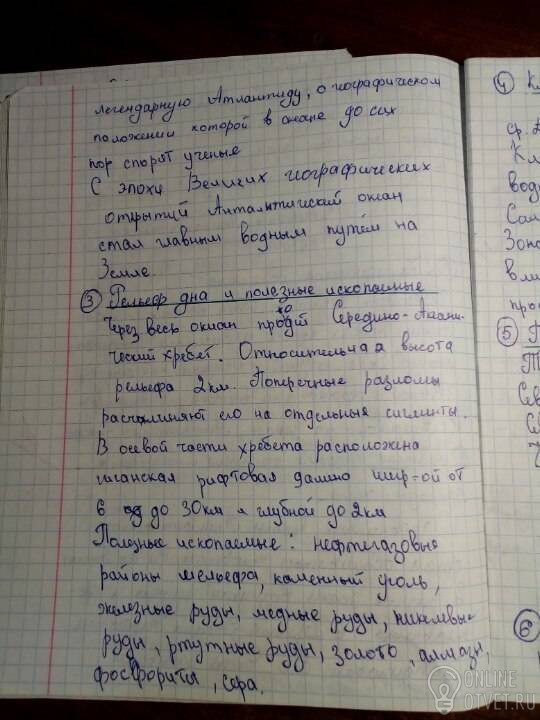 легендарную Атлантиду, о географическом
положении которой в океане до сих
пор спорят ученые
С эпохи Великих географических
открытий Атлантический океан
стал главным водным путём на
Земле.
③ Рельеф дна и полезные ископаемые
Через весь океан проходит Срединно-Атланти-
ческий хребет. Относительная высота
рельефа 2км. Поперечные разломы
расчленяют его на отдельные сигменты.
В осевой части хребета расположена
гиганская рифтовая дамно шир-ой от
6 до 30км и глубной до 2км
Полезные ископаемые: нефтегазовые
районы шельефа, каменный уголь,
железные руды, медные руды, никелвые
руды, ртутные руды, золото, алмазы,
фосфориты, сера.
④ К
ср. 
Кл
водо
Сам
Зона
вли
про
⑤
Сев
⑥
ONLINE
OTVET.RU